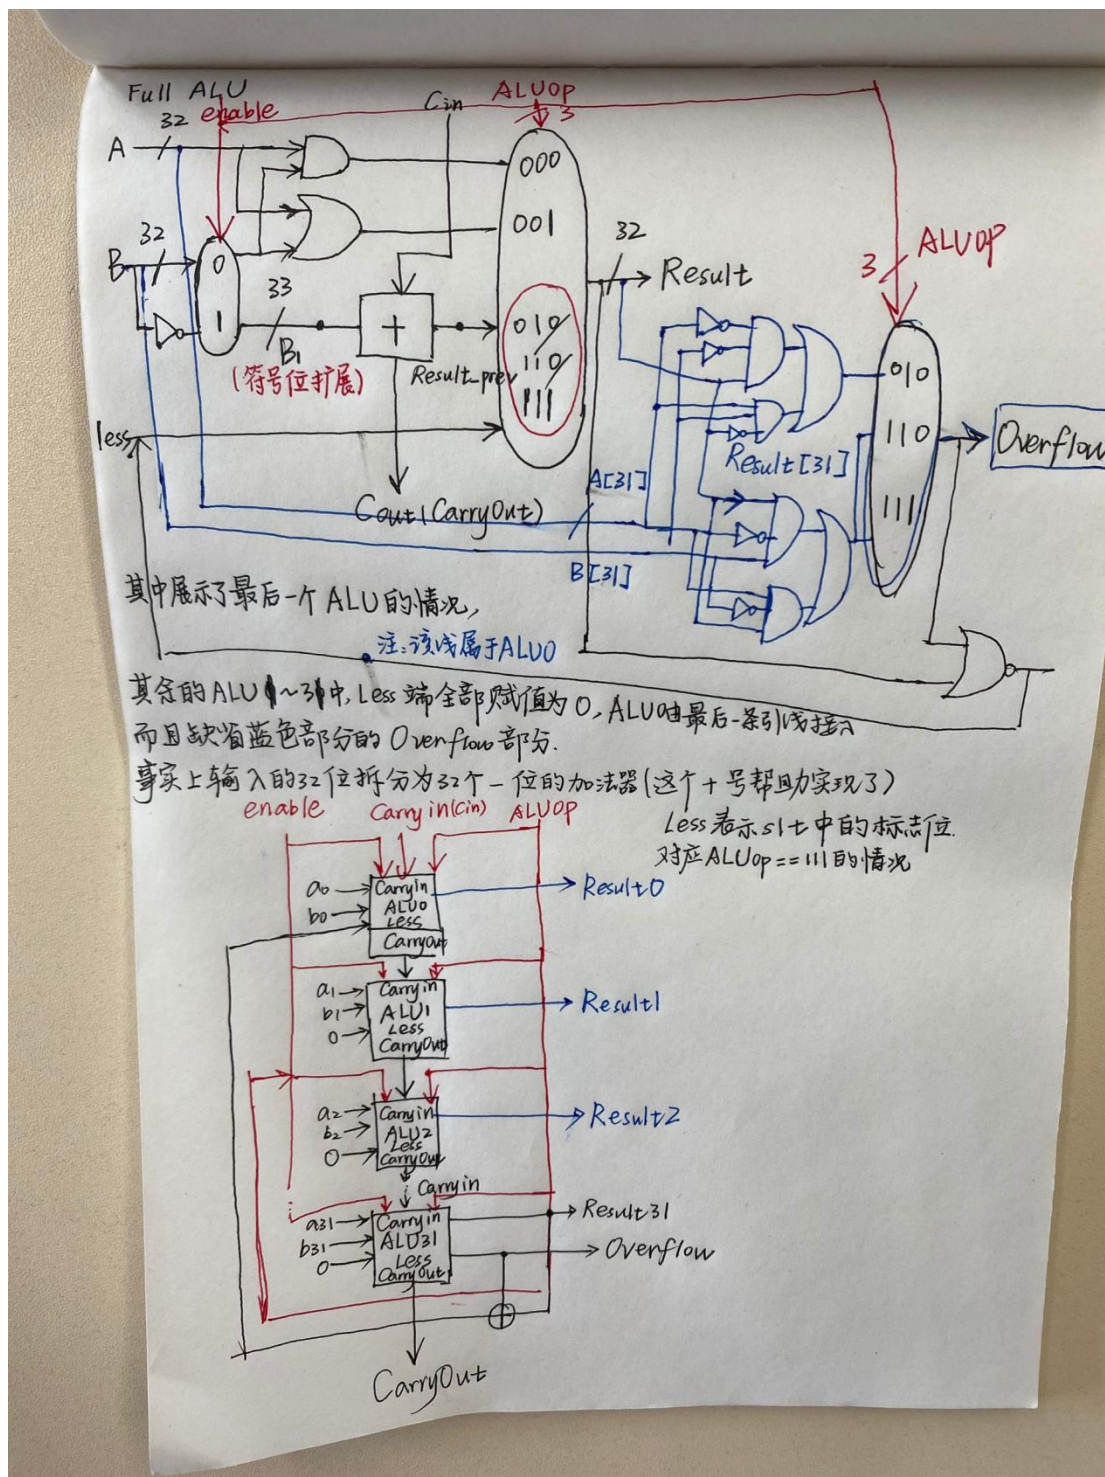 Full ALU
enable
Cin
ALUop
3
32
A
000
001
32
B
32
0
1
33
B1
(符号位扩展)
+
Result_prev
010/
110/
111
32
Result
3
ALUop
010
110
111
Overflow
less
A[31]
Result[31]
Cout(CarryOut)
B[31]
其中展示了最后一个ALU的情况,
注:该线属于ALU0
其余的ALU1~31中,Less端全部赋值为0,ALU0由最后一条引线接入
而且缺省蓝色部分的Overflow部分.
事实上输入的32位拆分为32个一位的加法器(这个+号帮助实现了)
Less表示slt中的标志位.
对应ALUop==111的情况
enable
Carryin(Cin)
ALUop
a0
b0
Carryin
ALU0
Less
CarryOut
Result0
a1
b1
0
Carryin
ALU1
Less
CarryOut
Result1
a2
b2
0
Carryin
ALU2
Less
CarryOut
Result2
Carryin
a31
b31
0
Carryin
ALU31
Less
CarryOut
Result31
Overflow
CarryOut